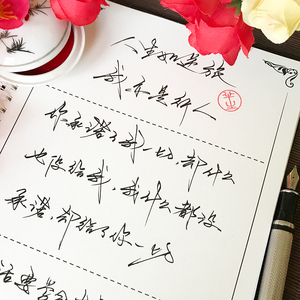 人生如逆旅
我亦是行人
你承诺了我一切,却什么
也没给我,我什么都没
承诺,却给了你一切